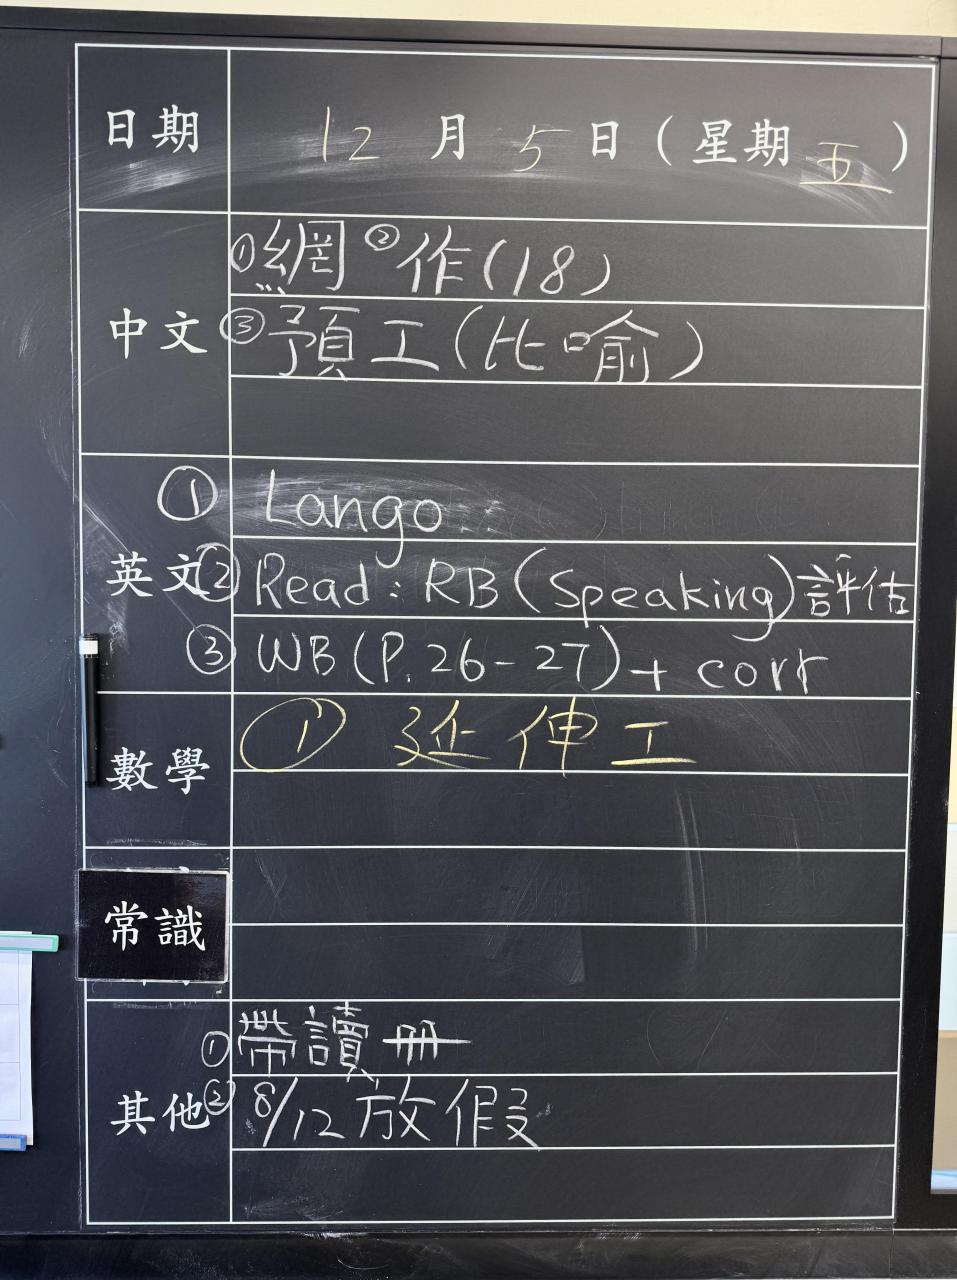 日期 12 月 5 日（星期五）
中文
①網 ②作(18)
③預工(比喻)
英文
① Lango
② Read : RB (Speaking) 評估
③ WB (P. 26-27) + corr
數學
① 延伸工
常識
其他
① 帶讀冊
② 8/12 放假